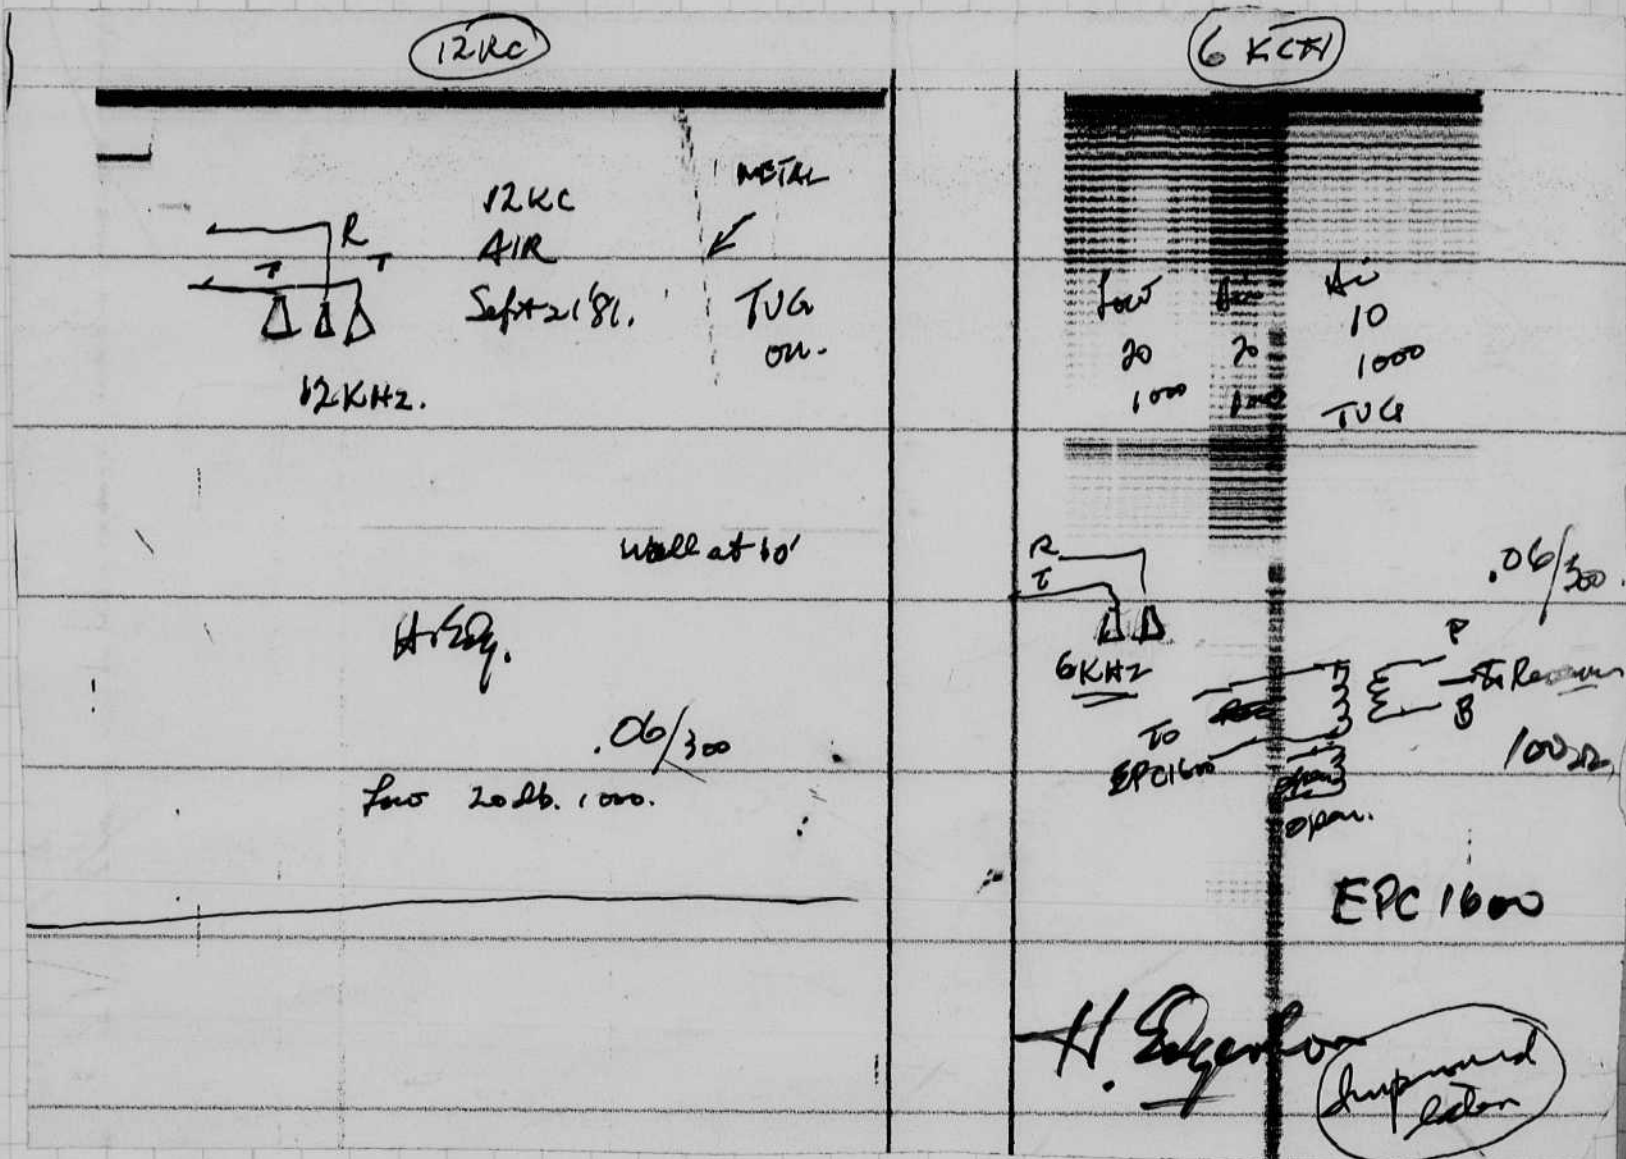 12KC
R
T T
12KHz.
12KC
AIR
Sept 21 '81.
METAL
TVG
on.
Wall at 10'
H. Edg.
.06/300
Low 20 db. 1000.
6 KC
Low
20
1000
Hi
20
1000
Hi
10
1000
TVG
R
T
6KHz
.06/300
P
To
B
TO
EPC1600
100Ω
open.
EPC 1600
H. Edgerton
Improved
later